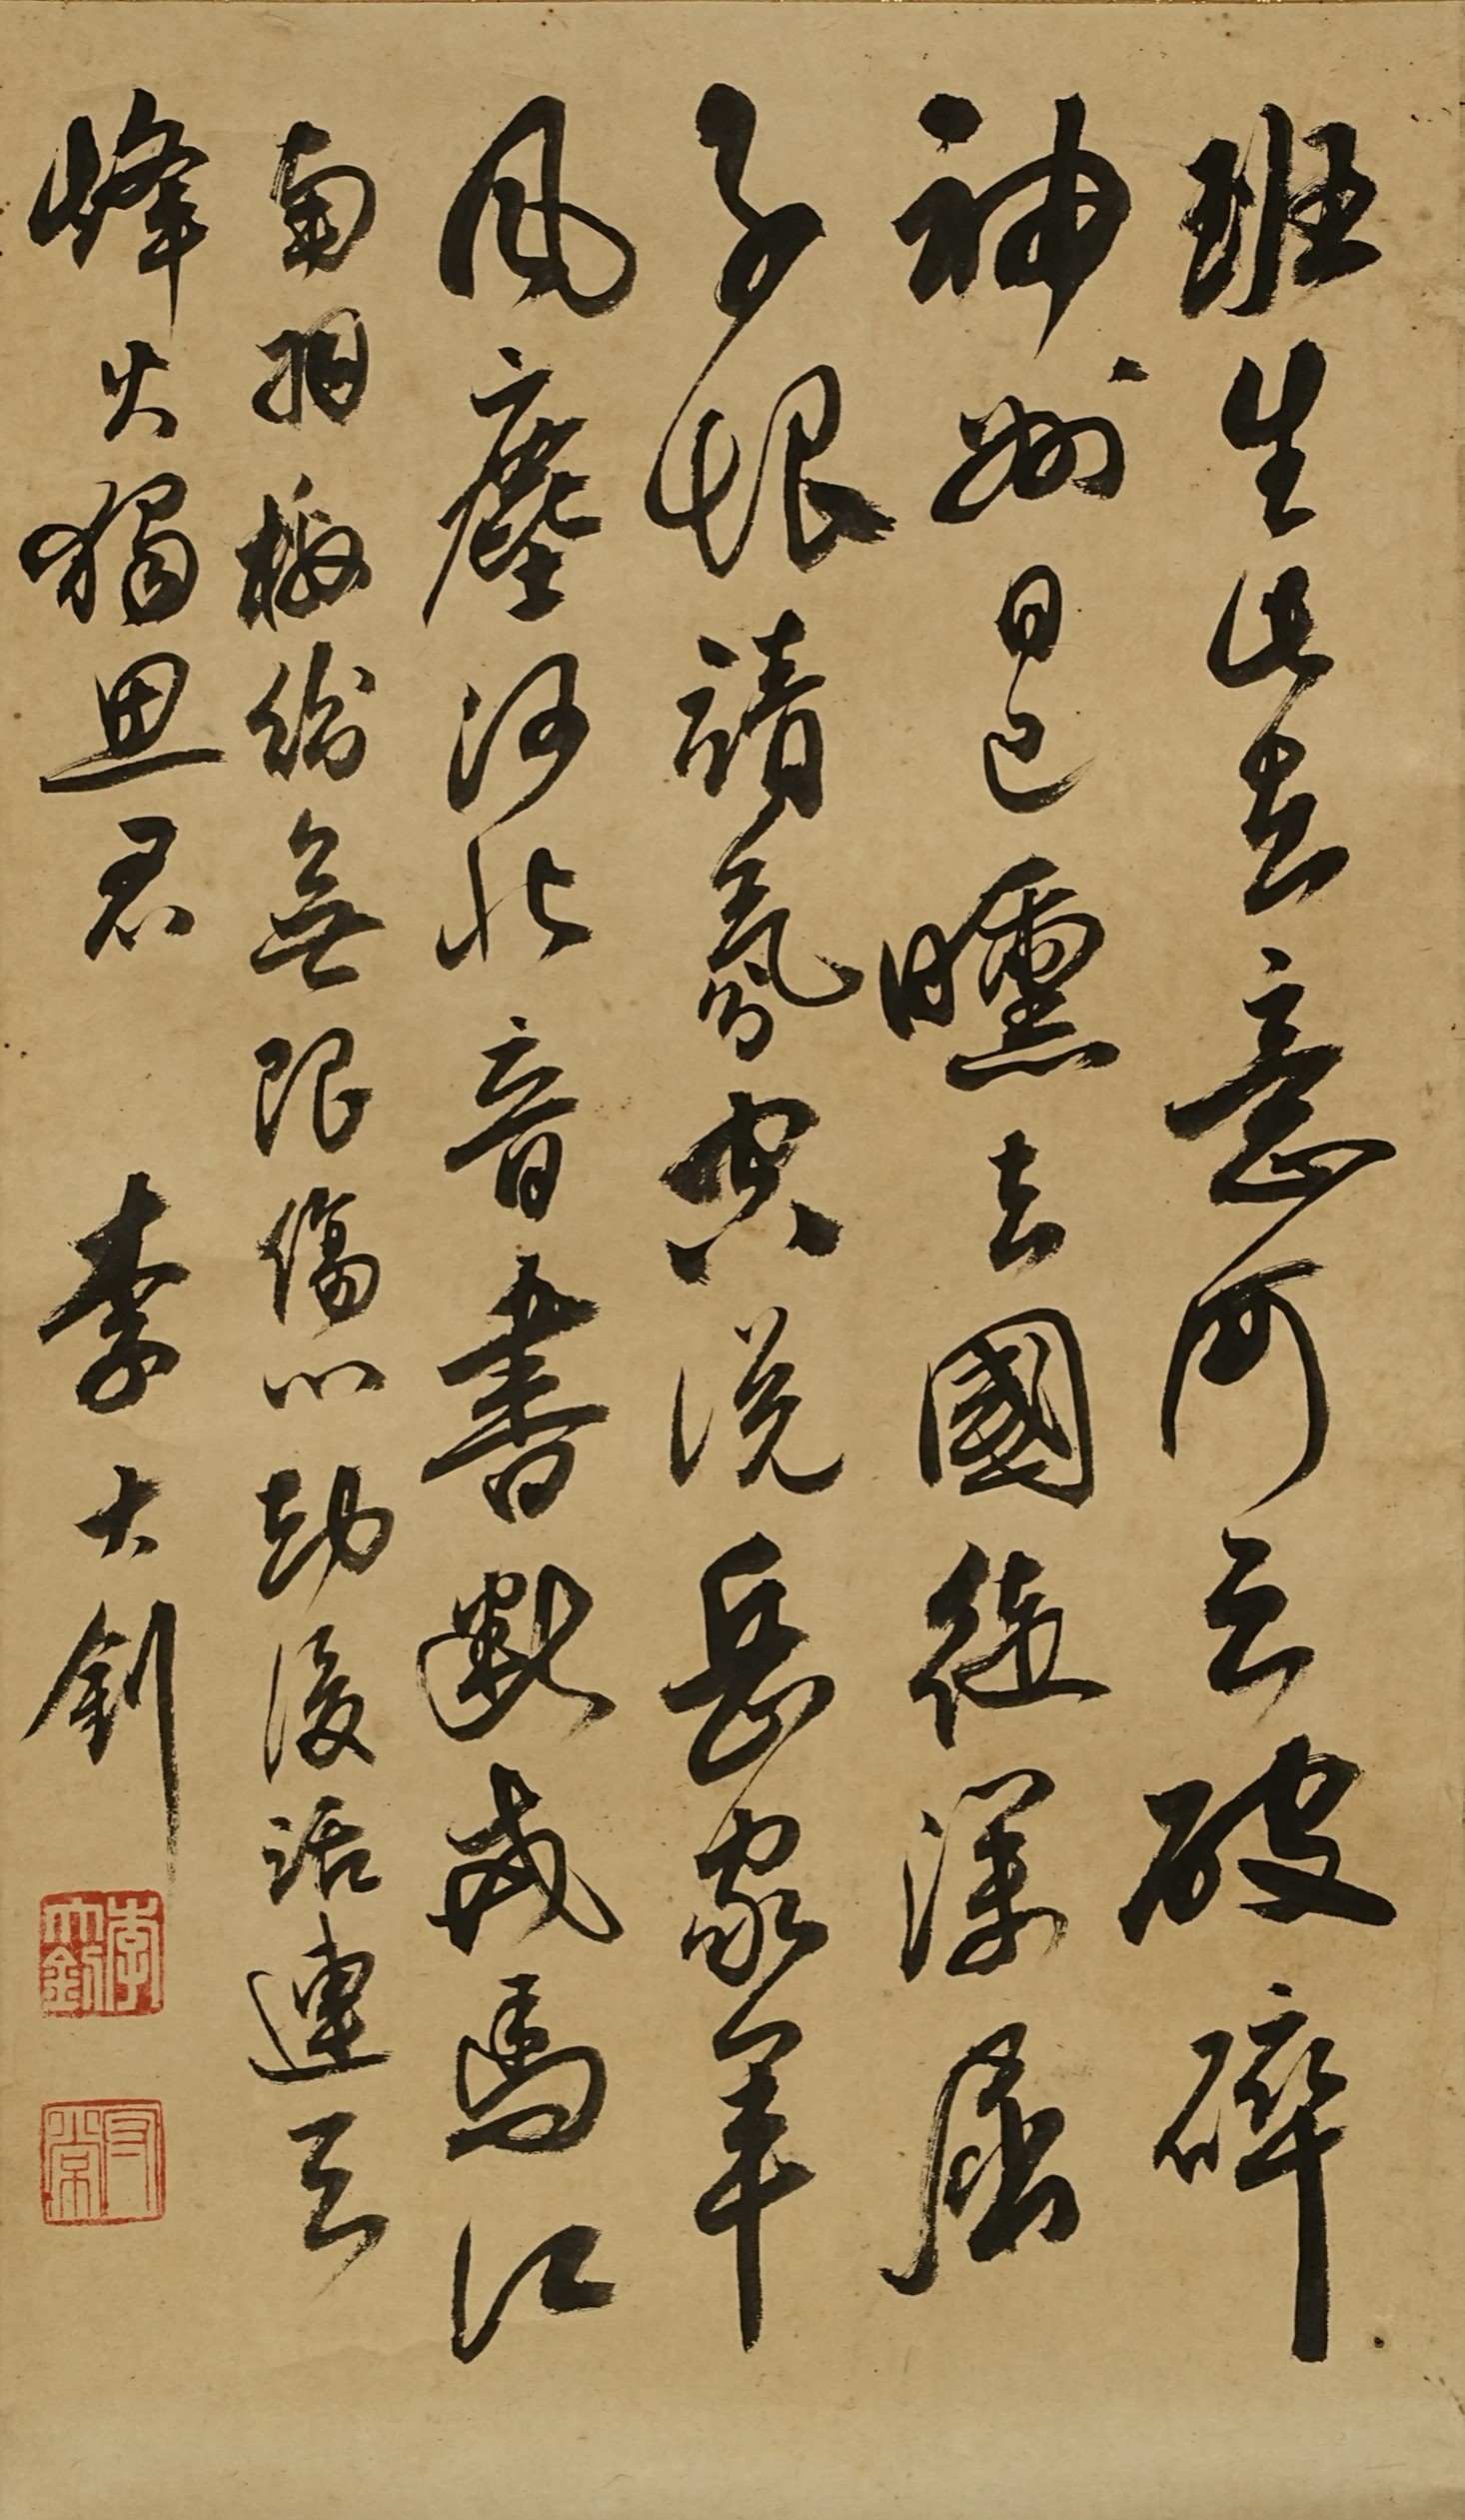 班生此去意何云破碎
神州日已曛去國徒深屈
子恨靖氛空説岳家軍
風塵河北音書斷戎馬江
南羽檄紛無限傷心劫後話連天
烽火獨思君 李大釗
李大釗
守常